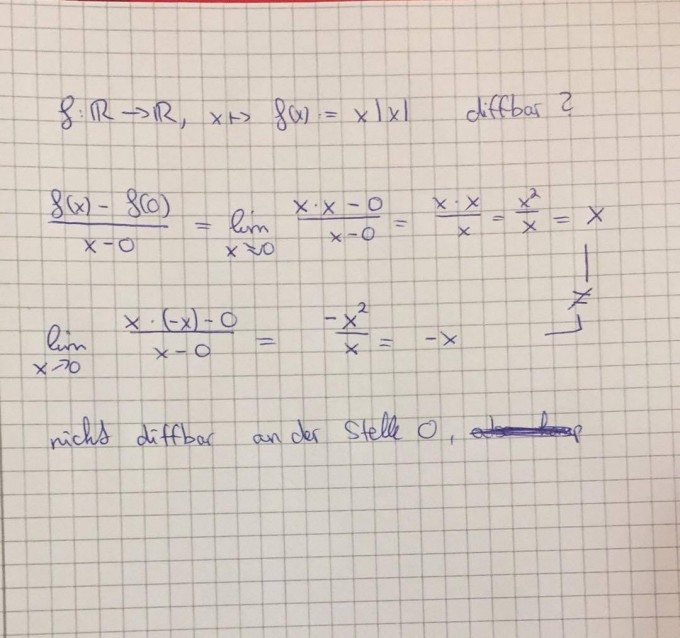 f: ℝ → ℝ, x ↦ f(x) := x|x| diffbar ?
(f(x) - f(0))/(x-0) = lim x→0 (x·x - 0)/(x-0) = (x·x)/x = x²/x = x
≠
lim x→0 (x·(-x)-0)/(x-0) = -x²/x = -x
nicht diffbar an der Stelle 0,